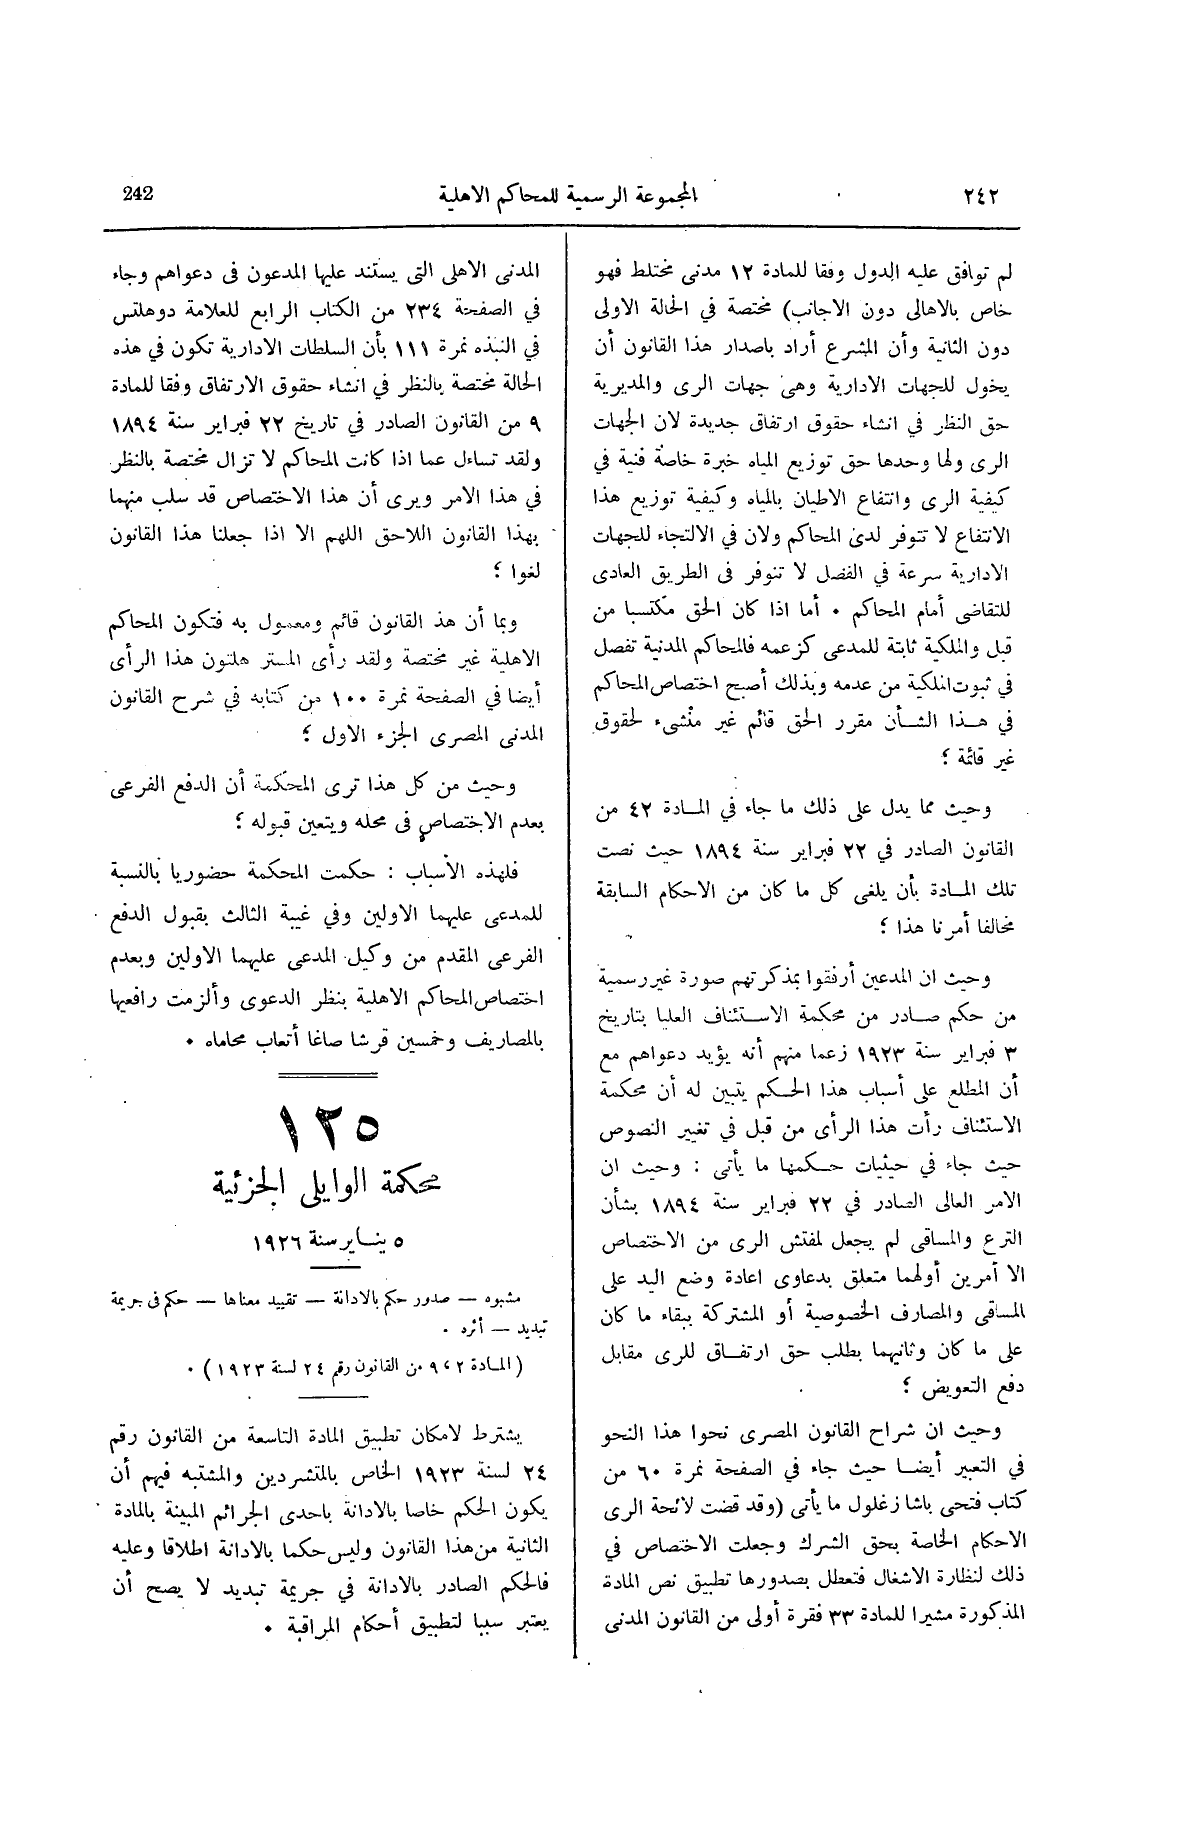 ٢٤٢
المجموعة الرسمية للمحاكم الاهلية
242
لم توافق عليه الدول وفقا للمادة ١٢ مدنى مختلط فهو
خاص بالاهالى دون الاجانب) مختصة في الحالة الاولى
دون الثانية وأن المشرع أراد باصدار هذا القانون أن
يخول للجهات الادارية وهى جهات الرى والمديرية
حق النظر في انشاء حقوق ارتفاق جديدة لان الجهات
الرى ولها وحدها حق توزيع المياه خبرة خاصة فنية في
كيفية الرى وانتفاع الاطيان بالمياه وكيفية توزيع هذا
الانتفاع لا تتوفر لدى المحاكم ولان في الالتجاء للجهات
الادارية سرعة في الفصل لا تتوفر فى الطريق العادى
للتقاضى أمام المحاكم ٠ أما اذا كان الحق مكتسبا من
قبل والملكية ثابتة للمدعى كزعمه فالمحاكم المدنية تفصل
في ثبوت الملكية من عدمه وبذلك أصبح اختصاص المحاكم
في هــذا الشــأن مقرر الحق قائم غير منشىء لحقوق
غير قائمة ؟
وحيث مما يدل على ذلك ما جاء في المــادة ٤٢ من
القانون الصادر في ٢٢ فبراير سنة ١٨٩٤ حيث نصت
تلك المــادة بأن يلغى كل ما كان من الاحكام السابقة
مخالفا أمرنا هذا ؟
وحيث ان المدعين أرفقوا بمذكرتهم صورة غير رسمية
من حكم صــادر من محكمة الاســتئناف العليا بتاريخ
٣ فبراير سنة ١٩٢٣ زعما منهم أنه يؤيد دعواهم مع
أن المطلع على أسباب هذا الحــكم يتبين له أن محكمة
الاستئناف رأت هذا الرأى من قبل في تغيير النصوص
حيث جاء في حيثيات حــكمها ما يأتى : وحيث ان
الامر العالى الصادر في ٢٢ فبراير سنة ١٨٩٤ بشأن
الترع والمساقى لم يجعل لمفتش الرى من الاختصاص
الا أمرين أولهما متعلق بدعاوى اعادة وضع اليد على
المساقى والمصارف الخصوصية أو المشتركة ببقاء ما كان
على ما كان وثانيهما بطلب حق ارتفــاق للرى مقابل
دفع التعويض ؟
وحيث ان شراح القانون المصرى نحوا هذا النحو
في التعبير أيضــا حيث جاء في الصفحة نمرة ٦٠ من
كتاب فتحى باشا زغلول ما يأتى (وقد قضت لائحة الرى
الاحكام الخاصة بحق الشرك وجعلت الاختصاص في
ذلك لنظارة الاشغال فتعطل بصدورها تطبيق نص المادة
المذكورة مشيرا للمادة ٣٣ فقرة أولى من القانون المدنى
المدنى الاهلى التى يستند عليها المدعون فى دعواهم وجاء
في الصفحة ٢٣٤ من الكتاب الرابع للعلامة دوهلتس
في النبذه نمرة ١١١ بأن السلطات الادارية تكون في هذه
الحالة مختصة بالنظر في انشاء حقوق الارتفاق وفقا للمادة
٩ من القانون الصادر في تاريخ ٢٢ فبراير سنة ١٨٩٤
ولقد تساءل عما اذا كانت المحاكم لا تزال مختصة بالنظر
في هذا الامر ويرى أن هذا الاختصاص قد سلب منهما
بهذا القانون اللاحق اللهم الا اذا جعلنا هذا القانون
لغوا ؟
وبما أن هذ القانون قائم ومعمول به فتكون المحاكم
الاهلية غير مختصة ولقد رأى المستر هلتون هذا الرأى
أيضا في الصفحة نمرة ١٠٠ من كتابه في شرح القانون
المدنى المصرى الجزء الاول ؟
وحيث من كل هذا ترى المحكمة أن الدفع الفرعى
بعدم الاختصاص فى محله ويتعين قبوله ؟
فلهذه الأسباب : حكمت المحكمة حضوريا بالنسبة
للمدعى عليهما الاولين وفي غيبة الثالث بقبول الدفع
الفرعى المقدم من وكيل المدعى عليهما الاولين وبعدم
اختصاص المحاكم الاهلية بنظر الدعوى وألزمت رافعيها
بالمصاريف وخمسين قرشا صاغا أتعاب محاماه ٠
١٢٥
محكمة الوايلى الجزئية
٥ ينــاير سنة ١٩٢٦
مشبوه — صدور حكم بالادانة — تقييد معناها — حكم فى جريمة
تبديد — أثره ٠
(المــادة ٢ ، ٩ من القانون رقم ٢٤ لسنة ١٩٢٣) ٠
يشترط لامكان تطبيق المادة التاسعة من القانون رقم
٢٤ لسنة ١٩٢٣ الخاص بالمتشردين والمشتبه فيهم أن
يكون الحكم خاصا بالادانة باحدى الجرائم المبينة بالمادة
الثانية من هذا القانون وليس حكما بالادانة اطلاقا وعليه
فالحكم الصادر بالادانة في جريمة تبديد لا يصح أن
يعتبر سببا لتطبيق أحكام المراقبة ٠